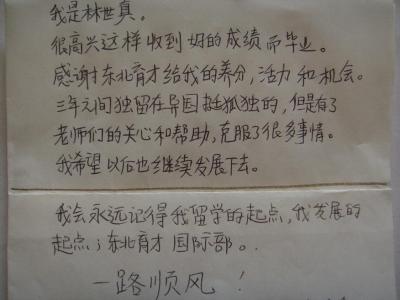 我是林世真。
很高兴这样收到好的成绩而毕业。
感谢东北育才给我的养分,活力和机会。
三年之间独留在异国挺孤独的,但是有了
老师们的关心和帮助,克服了很多事情。
我希望以后也继续发展下去。
我会永远记得我留学的起点,我发展的
起点;东北育才国际部。
一路顺风!